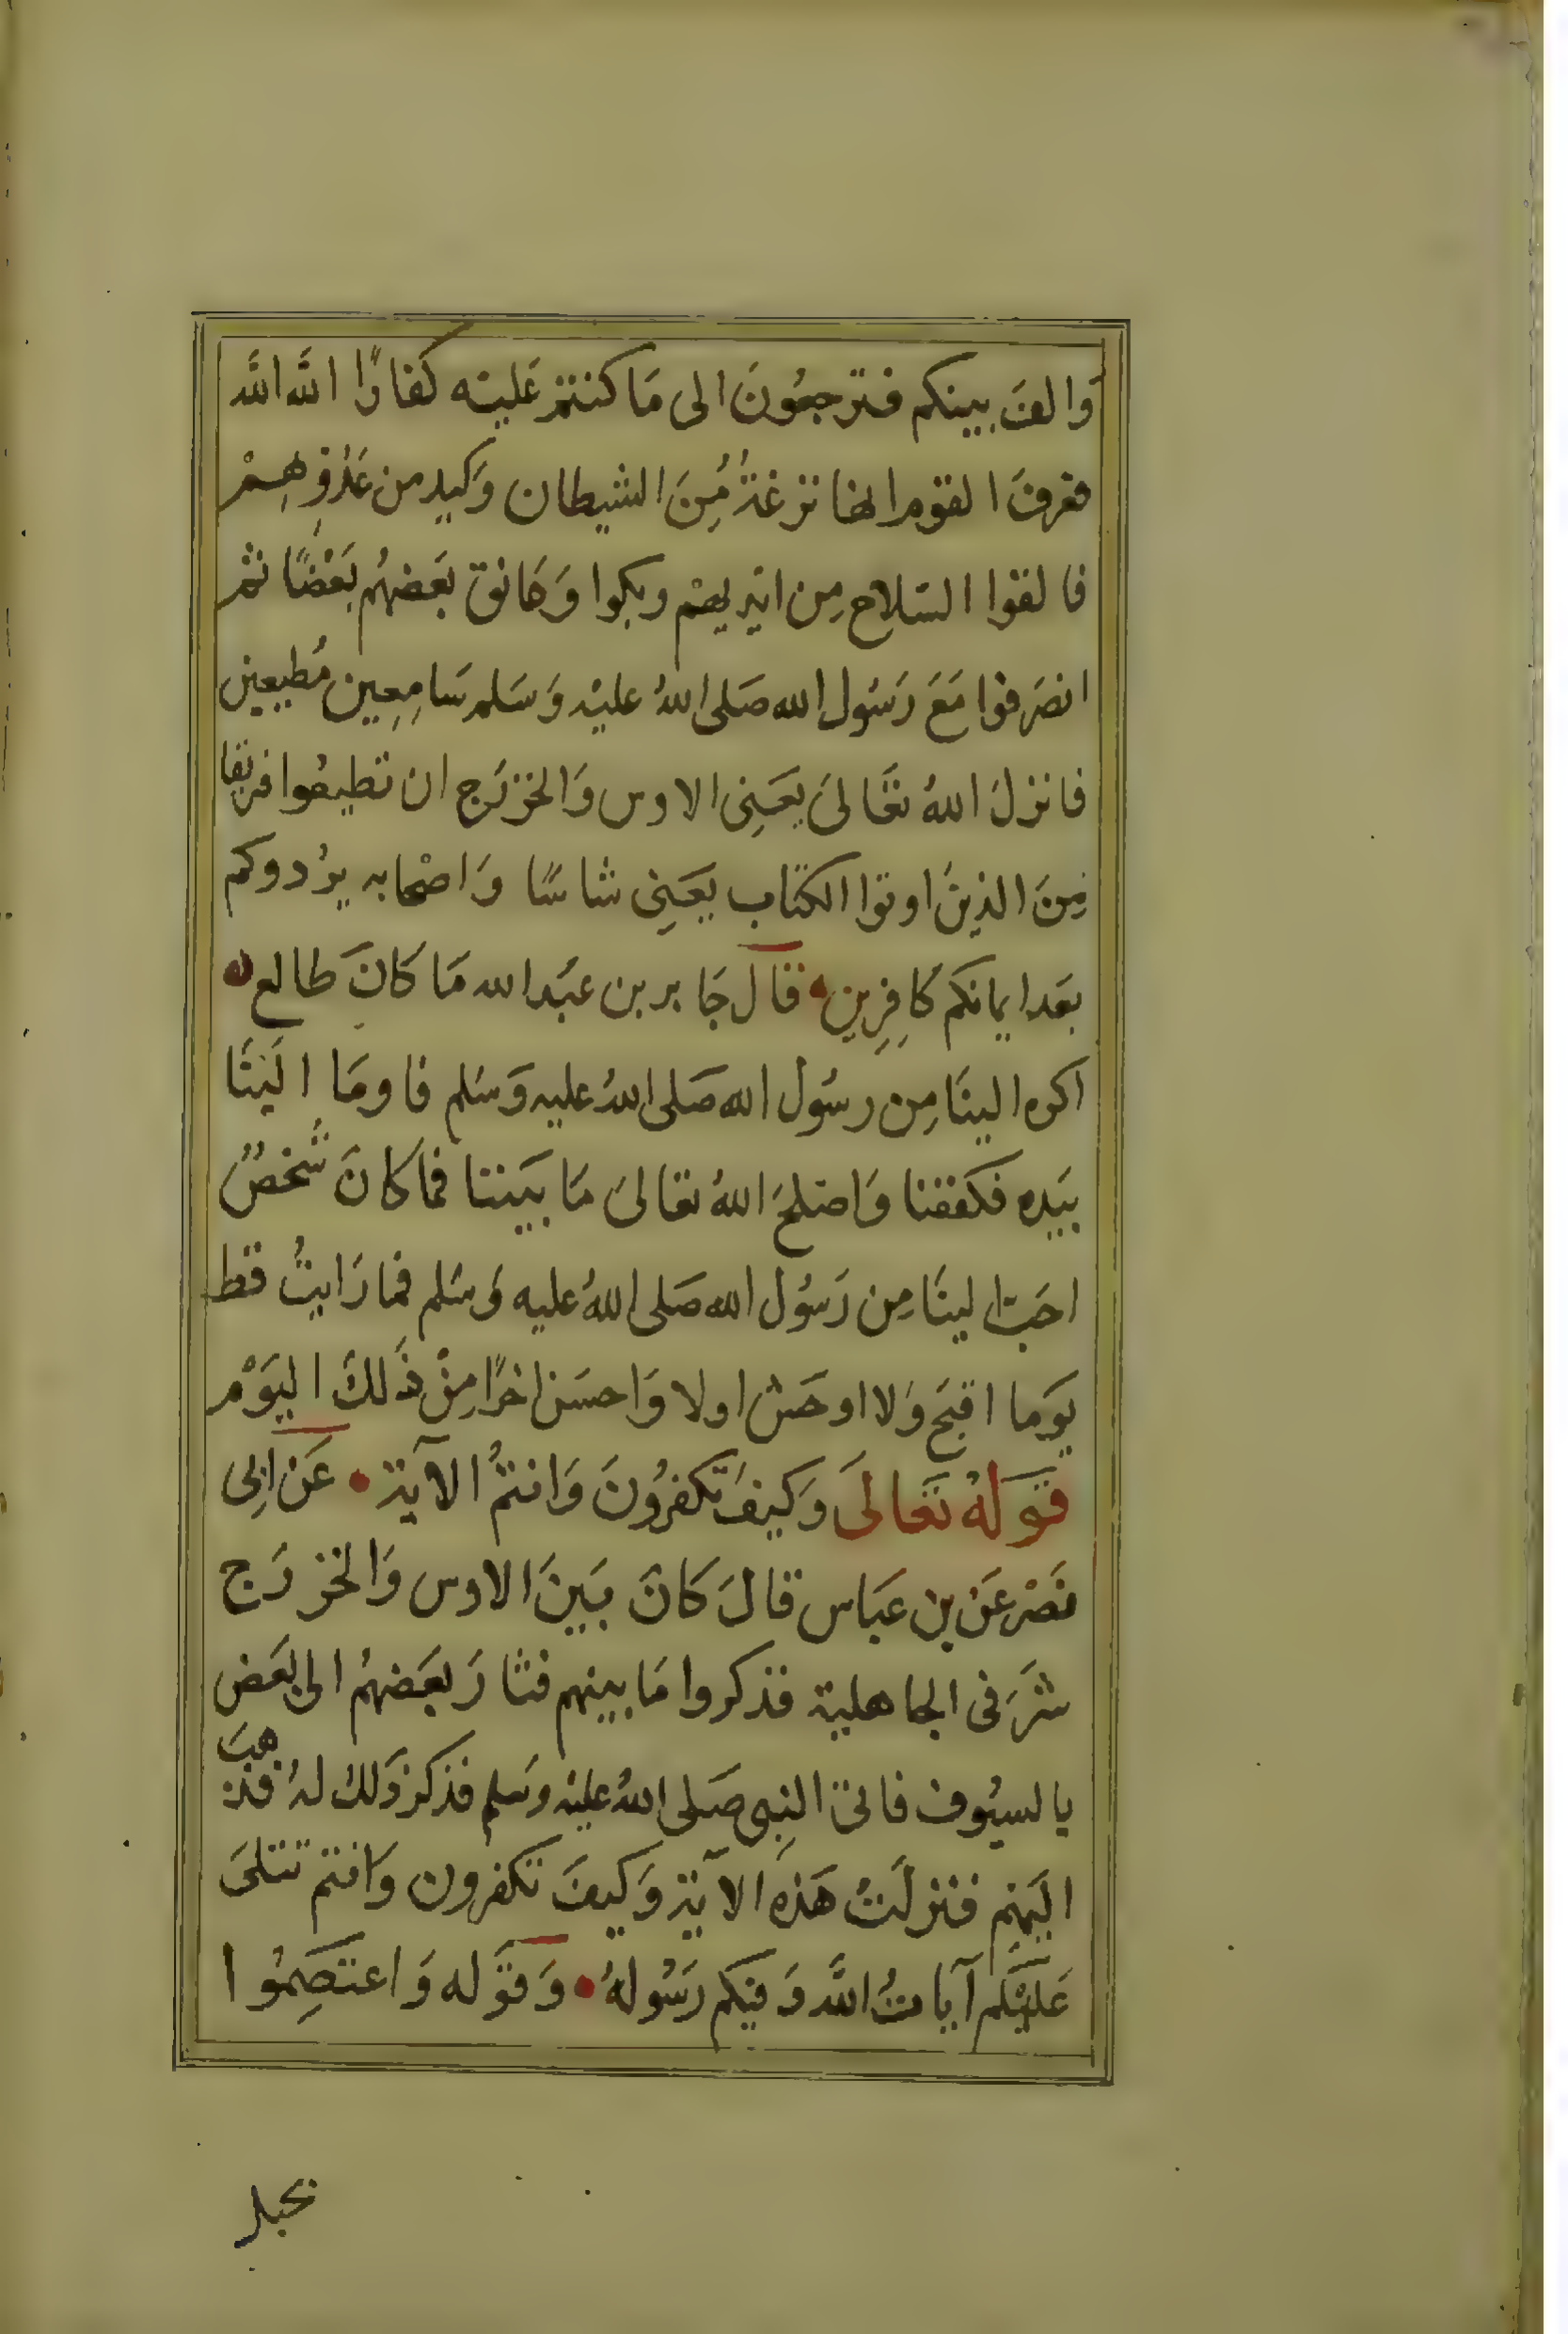 وَالف بينكم فترجعُونَ الى مَا كنتم عَليه كفارًا اللَّه اللَّه
فعرفَ القوم انها نزغةُ مِنَ الشيطان وَكيد من عَدُوِهِمْ
فالقوا السّلاح مِن ايديهم وبكوا وَعَانق بَعضهُم بَعْضًا ثم
انصَرفوا مَعَ رَسُول الله صَلى اللهُ عليْه وَسَلم سَامِعِين مُطيعين
فانزلَ اللهُ تعَالىَ يَعَنِى الاوس وَالخزرَج ان تطيعُوا فريقا
مِنَ الذينَ اوتوا الكتاب يَعَنِى شاسًا وَاصْحابه يرُدوكم
بعَد ايمانكم كافِرِين • قالَ جَابر بن عبُد الله مَا كَانَ طالع •
اكره الينَا مِن رسُول الله صَلى اللهُ عليه وَسَلم فاومَا الَينَا
بيَده فكففنا وَاصَلحَ اللهُ تعالىَ مَا بيَننا فما كانَ شَخصٌ
احَبّ الينَا مِن رَسُول الله صَلى اللهُ عليه وَسَلم فما رَايتُ قط
يوَما اقبَح وَلا اوحَش اولا وَاحسَن اخرًا مِنْ ذَلكَ اليَوْم
قوَلهُ تعَالىَ وَكيفَ تكفرُونَ وَانتمُ الآية • عَن ابِى
نصَرْ عَن بن عبَاس قالَ كانَ بَينَ الاوس وَالخزرَج
شرَ فى الجاهلية فذكروا مَا بينهم فثارَ بعَضهُم الى بعَض
بالسيُوف فاتىَ النبِى صَلى اللهُ عليْه وسَلم فذكر ذَلكَ لهُ فذهَبَ
اليَهم فنزلَتْ هَذهِ الآية وَكيفَ تكفرون وَانتم تتلىَ
عَليَكم آياتُ اللَّه وَفيكم رَسُولهُ • وَقوَله وَاعتصِمُوا
بحبل